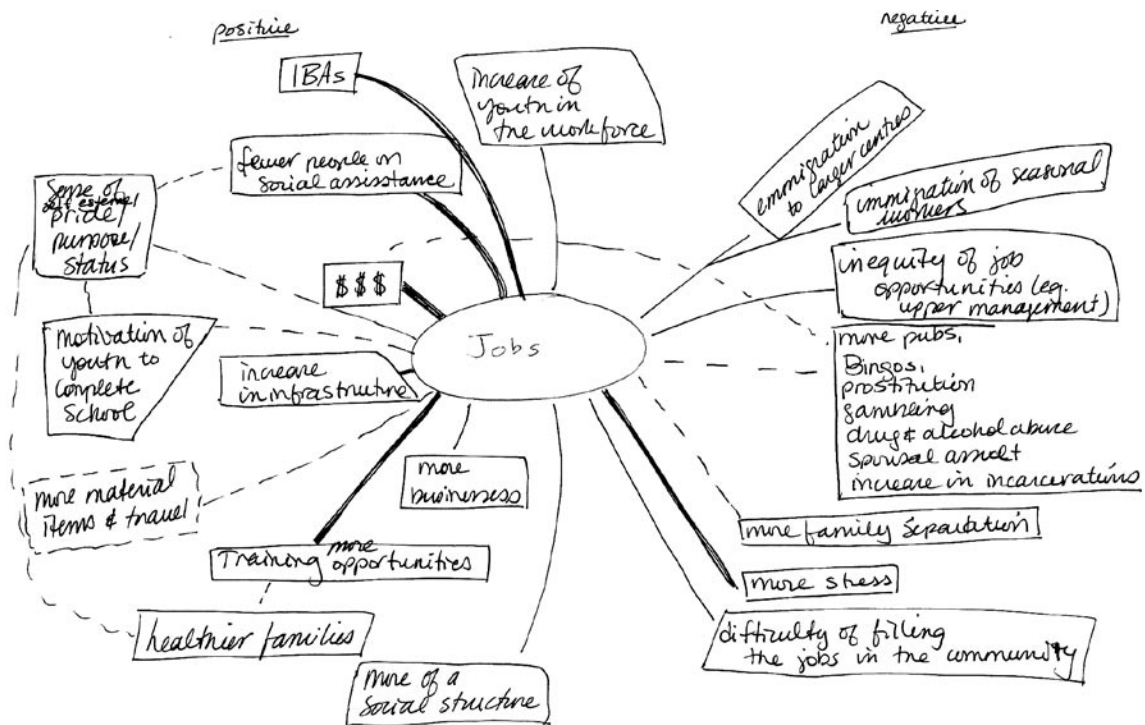 positive
negative
IBAs
increase of
youth in
the workforce
fewer people on
social assistance
Sense of
self esteem/
pride/
purpose/
status
$ $ $
Jobs
motivation of
youth to
complete
school
increase
in infrastructure
more material
items & travel
more
businesses
Training more
opportunities
healthier families
more of a
social structure
emmigration
to larger centres
immigration of seasonal
workers
inequity of job
opportunities (eg.
upper management)
more pubs,
Bingos,
prostitution
gambling
drug & alcohol abuse
spousal assult
increase in incarcerations
more family separation
more stress
difficulty of filling
the jobs in the community